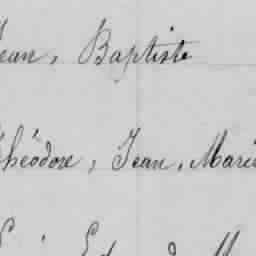 Jean, Baptiste
Théodore, Jean, Marie